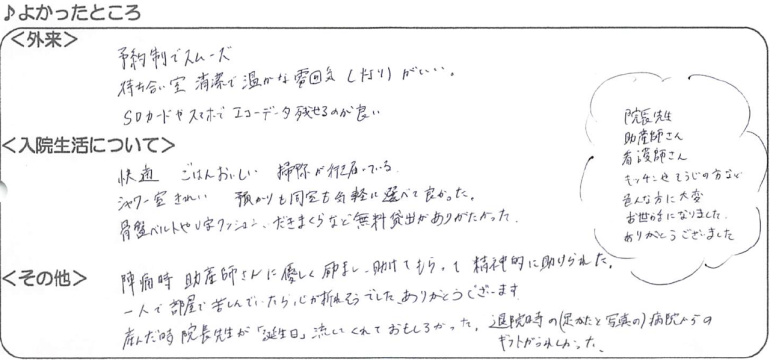 ♪よかったところ
＜外来＞
予約制でスムーズ
待ち合い室 清潔で温かな雰囲気(灯り)がいい。
SDカードやスマホでエコーデータ残せるのが良い
＜入院生活について＞
快適　ごはんおいしい　掃除が行き届いている
シャワー室きれい　預かりも同室も気軽に選べて良かった。
骨盤ベルトやU字クッション、だきまくらなど無料貸出がありがたかった。
＜その他＞
陣痛時 助産師さんに優しく励まし、助けてもらって 精神的に助けられた。
一人で部屋で苦しんでいたら心が折れそうでした。ありがとうございます
産んだ時 院長先生が「誕生日」流してくれておもしろかった。退院時の(足かたと写真の)病院からの
ギフトがうれしかった。
院長先生
助産師さん
看護師さん
キッチンやそうじの方など
色んな方に大変
お世話になりました。
ありがとうございました